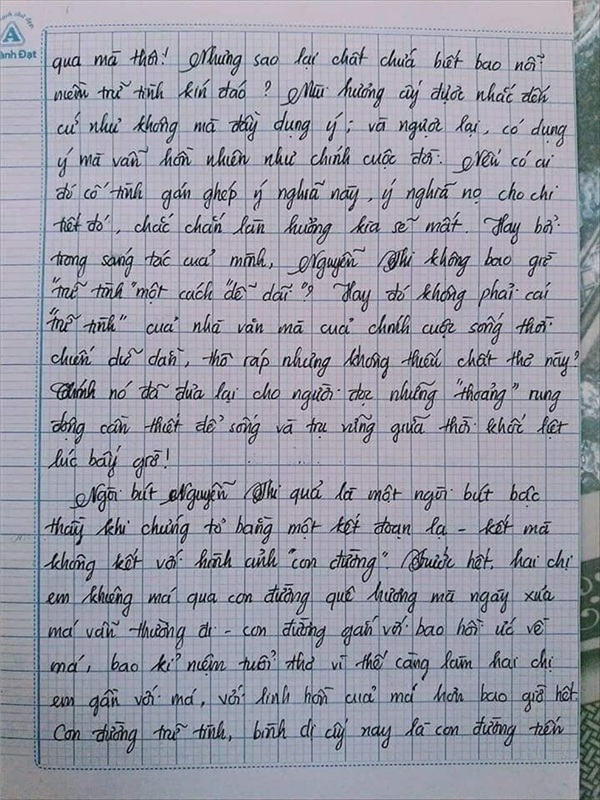 ành Đạt
qua mà thôi! Nhưng sao lại chất chứa biết bao nỗi
niềm trữ tình kín đáo? Mùi hương ấy được nhắc đến
cứ như không mà đầy dụng ý; và ngược lại, có dụng
ý mà vẫn hồn nhiên như chính cuộc đời. Nếu có ai
đó cố tình gán ghép ý nghĩa này, ý nghĩa nọ cho chi
tiết đó, chắc chắn làn hương kia sẽ mất. Hay bởi
trong sáng tác của mình, Nguyễn Thi không bao giờ
"trữ tình" một cách "dễ dãi"? Hay đó không phải cái
"trữ tình" của nhà văn mà của chính cuộc sống thời
chiến dữ dằn, thô ráp nhưng không thiếu chất thơ này?
Chính nó đã đưa lại cho người đọc những "thoáng" rung
động cần thiết để sống và trụ vững giữa thời khốc liệt
lúc bấy giờ!
Ngòi bút Nguyễn Thi quả là một ngòi bút bậc
thầy khi chứng tỏ bằng một kết đoạn lạ - kết mà
không kết với hình ảnh "con đường". Trước hết, hai chị
em khiêng má qua con đường quê hương mà ngày xưa
má vẫn thường đi - con đường gắn với bao hồi ức về
má, bao kỉ niệm tuổi thơ vì thế càng làm hai chị
em gần với má, với linh hồn của má hơn bao giờ hết.
Con đường trữ tình, bình dị ấy nay là con đường tiến